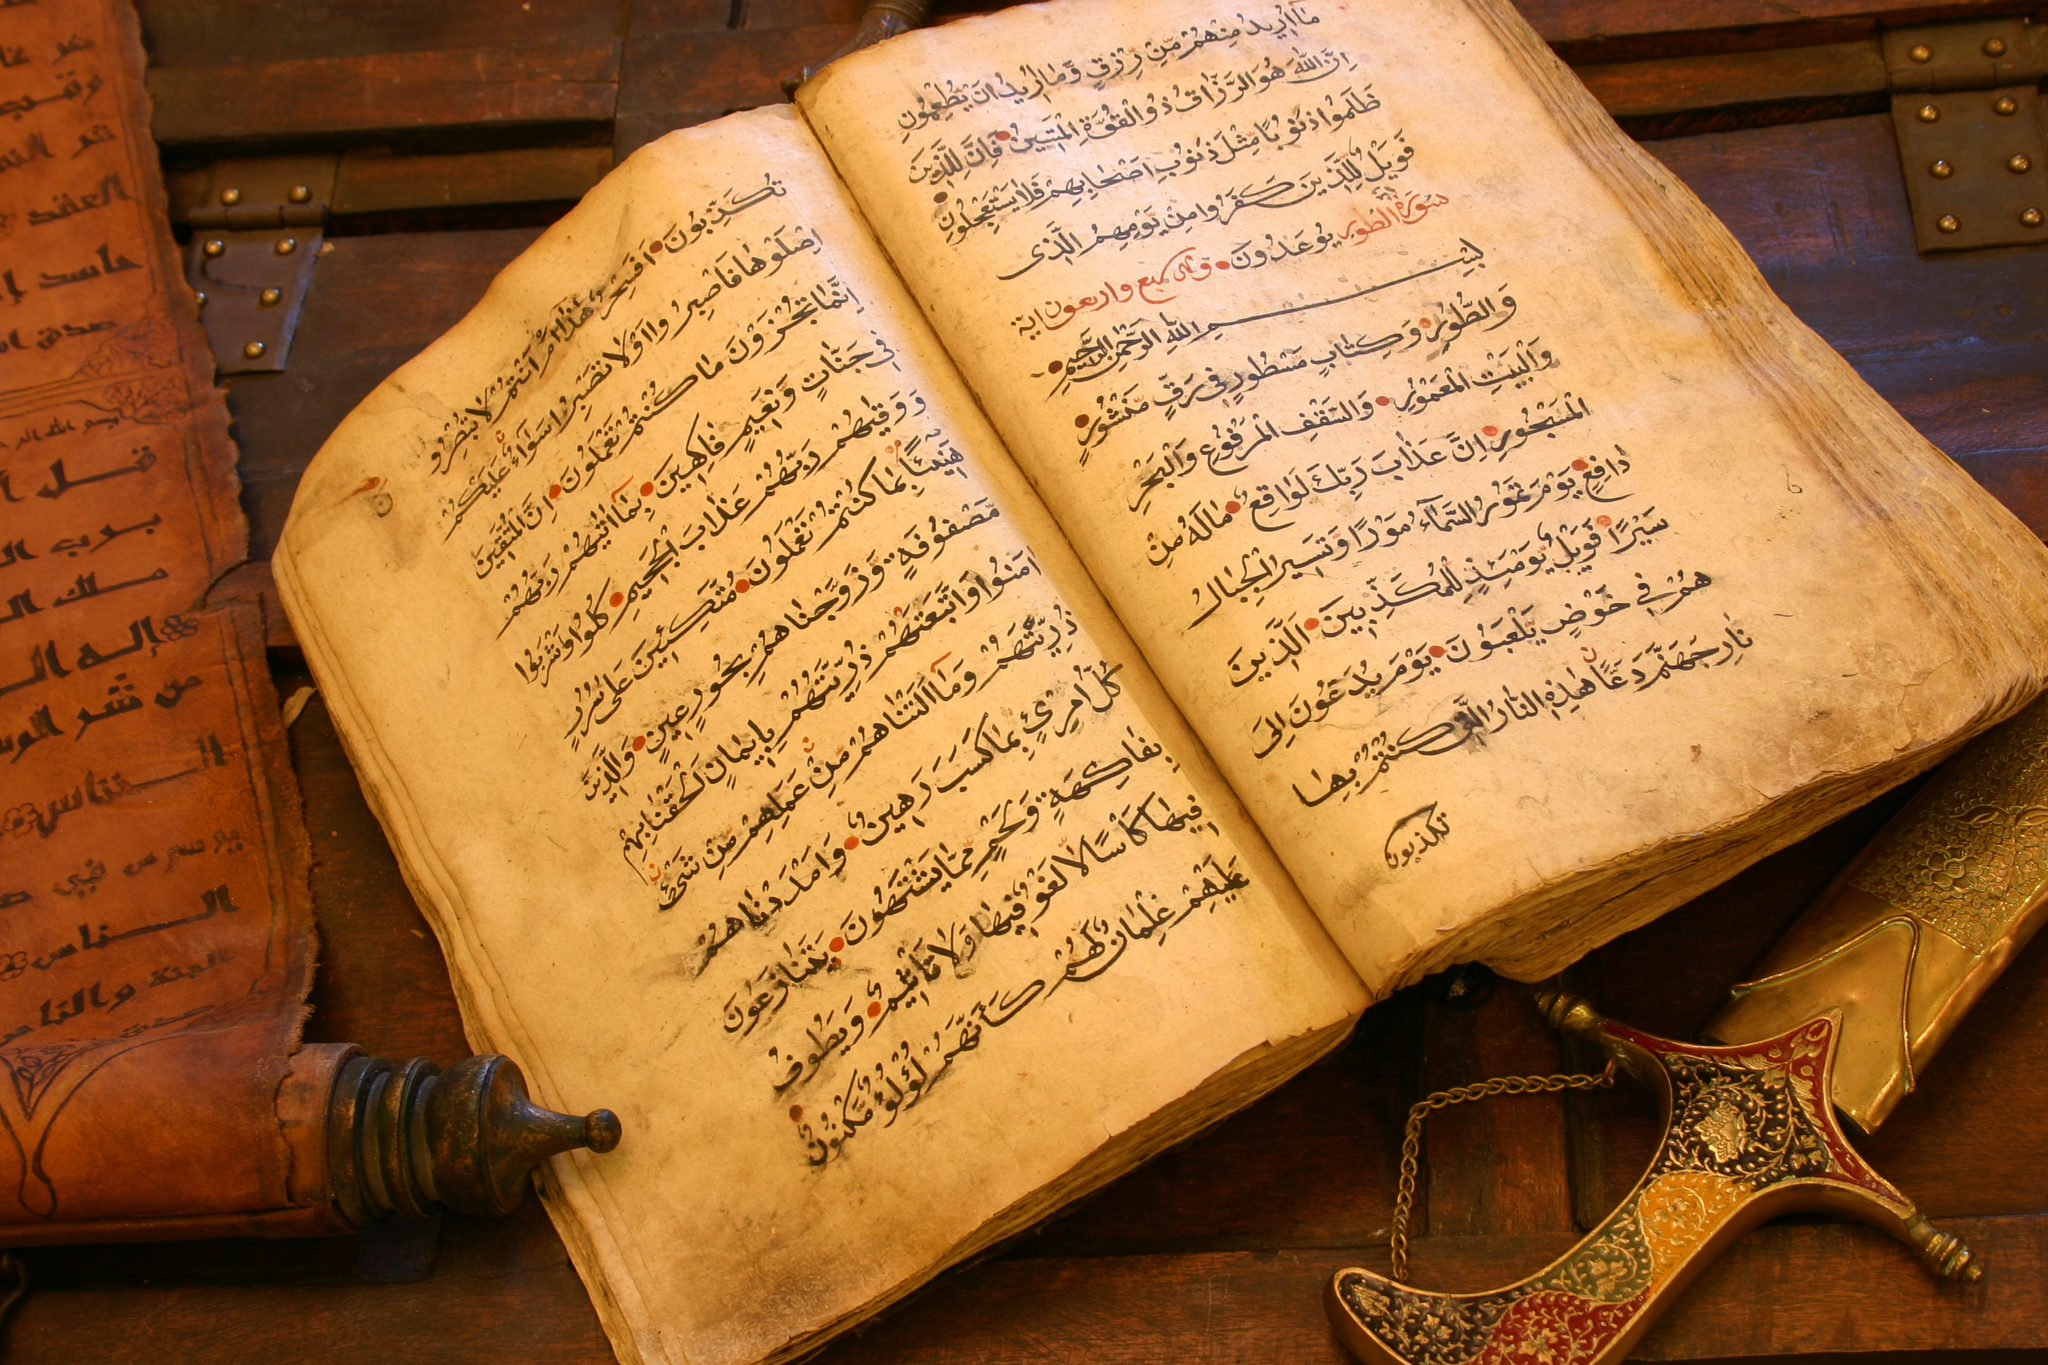 مَا أُرِيدُ مِنْهُمْ مِنْ رِزْقٍ وَمَا أُرِيدُ أَنْ يُطْعِمُونِ
إِنَّ اللَّهَ هُوَ الرَّزَّاقُ ذُو الْقُوَّةِ الْمَتِينُ فَإِنَّ لِلَّذِينَ
ظَلَمُوا ذَنُوبًا مِثْلَ ذَنُوبِ أَصْحَابِهِمْ فَلَا يَسْتَعْجِلُونِ
فَوَيْلٌ لِلَّذِينَ كَفَرُوا مِنْ يَوْمِهِمُ الَّذِي
سورة الطور يُوعَدُونَ وهي سبع واربعون اية
بِسْمِ اللَّهِ الرَّحْمَنِ الرَّحِيمِ
وَالطُّورِ وَكِتَابٍ مَسْطُورٍ فِي رَقٍّ مَنْشُورٍ
وَالْبَيْتِ الْمَعْمُورِ وَالسَّقْفِ الْمَرْفُوعِ وَالْبَحْرِ
الْمَسْجُورِ إِنَّ عَذَابَ رَبِّكَ لَوَاقِعٌ مَا لَهُ مِنْ
دَافِعٍ يَوْمَ تَمُورُ السَّمَاءُ مَوْرًا وَتَسِيرُ الْجِبَالُ
سَيْرًا فَوَيْلٌ يَوْمَئِذٍ لِلْمُكَذِّبِينَ الَّذِينَ
هُمْ فِي خَوْضٍ يَلْعَبُونَ يَوْمَ يُدَعُّونَ إِلَى
نَارِ جَهَنَّمَ دَعًّا هَذِهِ النَّارُ الَّتِي كُنْتُمْ بِهَا
تكذبون
تُكَذِّبُونَ أَفَسِحْرٌ هَذَا أَمْ أَنْتُمْ لَا تُبْصِرُونَ
اصْلَوْهَا فَاصْبِرُوا أَوْ لَا تَصْبِرُوا سَوَاءٌ عَلَيْكُمْ
إِنَّمَا تُجْزَوْنَ مَا كُنْتُمْ تَعْمَلُونَ إِنَّ الْمُتَّقِينَ
فِي جَنَّاتٍ وَنَعِيمٍ فَاكِهِينَ بِمَا آتَيهُمْ رَبُّهُمْ
وَوَقَيهُمْ رَبُّهُمْ عَذَابَ الْجَحِيمِ كُلُوا وَاشْرَبُوا
هَنِيئًا بِمَا كُنْتُمْ تَعْمَلُونَ مُتَّكِئِينَ عَلَى سُرُرٍ
مَصْفُوفَةٍ وَزَوَّجْنَاهُمْ بِحُورٍ عِينٍ وَالَّذِينَ
آمَنُوا وَاتَّبَعَتْهُمْ ذُرِّيَّتُهُمْ بِإِيمَانٍ أَلْحَقْنَا بِهِمْ
ذُرِّيَّتَهُمْ وَمَا أَلَتْنَاهُمْ مِنْ عَمَلِهِمْ مِنْ شَيْءٍ
كُلُّ امْرِئٍ بِمَا كَسَبَ رَهِينٌ وَأَمْدَدْنَاهُمْ
بِفَاكِهَةٍ وَلَحْمٍ مِمَّا يَشْتَهُونَ يَتَنَازَعُونَ
فِيهَا كَأْسًا لَا لَغْوٌ فِيهَا وَلَا تَأْثِيمٌ وَيَطُوفُ
عَلَيْهِمْ غِلْمَانٌ لَهُمْ كَأَنَّهُمْ لُؤْلُؤٌ مَكْنُونٌ
العقد
حاسد
قل
برب
ملك
إله
من شر
الخناس
يوسوس في
الناس
الجنة والناس